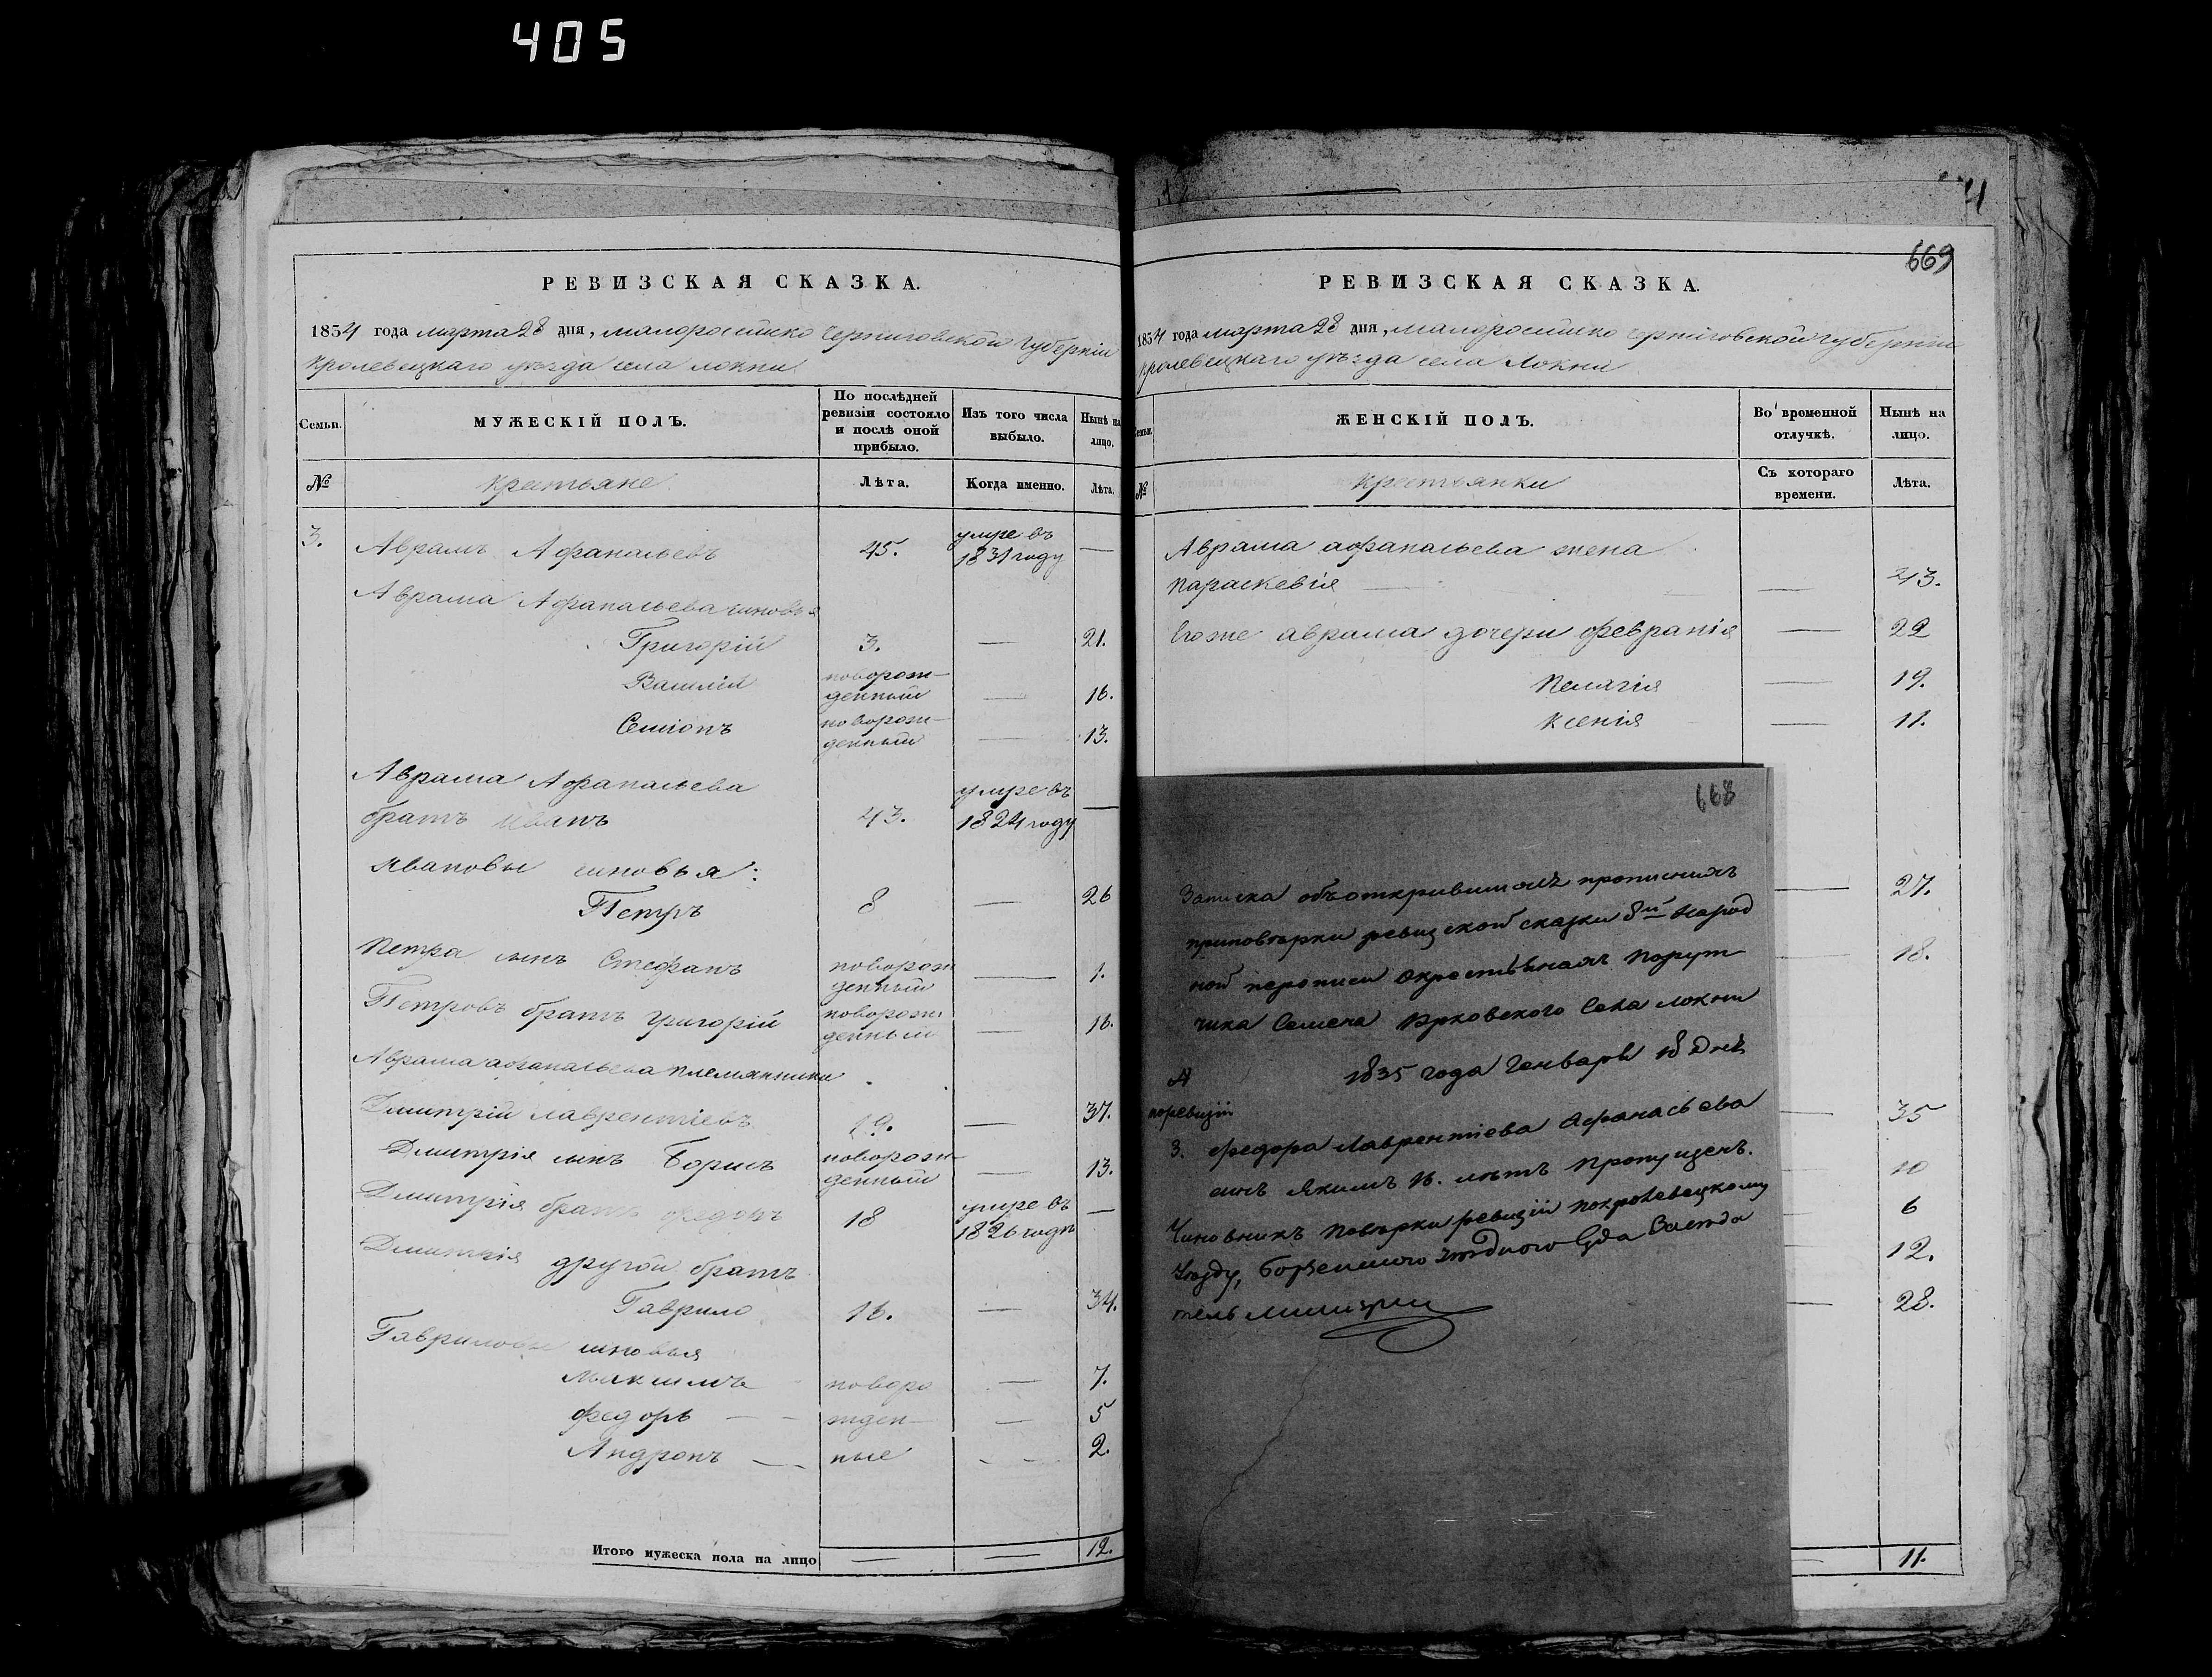 405
4
669
РЕВИЗСКАЯ СКАЗКА.
1834 года марта 28 дня, малоросийско Черниговской Губерніи
Кролевецкаго уѣзда села Локни
Семьи.
МУЖЕСКІЙ ПОЛЪ.
По послѣдней ревизіи состояло и послѣ оной прибыло.
Изъ того числа выбыло.
Нынѣ на лицо.
№
крестьяне
Лѣта.
Когда именно.
Лѣта.
3. Аврамъ Афанасьевъ 45. умре въ 1831 году —
Аврама Афанасьева синовья
Григорій 3. — 21.
Василій новорож-денный — 16.
Семіонъ новорож-денный — 13.
Аврама Афанасьева
братъ Иванъ 43. умре въ 1824 году —
Ивановы синовья:
Петръ 8 — 26
Петра синъ Стефанъ новорож денный — 1.
Петровъ братъ Григорій новорож денный — 16.
Аврама афанасьева племянники
Дмитрій лаврентіевъ 19. — 37.
Дмитрія синъ Борисъ новорож-денный — 13.
Дмитрія братъ федоръ 18 умре въ 1826 годѣ —
Дмитрія другой братъ
Гаврило 16. — 34.
Гавриловы синовья
Максимъ новоро — 7.
федоръ — — жден- — 5
Андронъ — ные - - 2.
Итого мужеска пола на лицо — — 12.
РЕВИЗСКАЯ СКАЗКА.
1834 года марта 28 дня, малоросийско черниговской губерніи
Кролевецкаго уѣзда села Локни
Семьи.
ЖЕНСКІЙ ПОЛЪ.
Во временной отлучкѣ.
Нынѣ на лицо.
№
крестьянки
Съ котораго времени.
Лѣта.
Аврама афанасьева жена
Параскевія — — 43.
Егоже аврама дочери февранія — 22
Пелагія — 19.
Ксенія — 11.
27.
18.
35
10
6
12.
28.
11.
668
Записка объоткрившихся прописнихъ
приповѣрки ревизской сказки 8й Народ
ной переписи окрестьянахъ Порут
чика Семена Ярковского Села локни
1835 года Генваря 18 Днѣ
№
поревизіи
3. федора Лаврентіева Афанасьева
синъ Якимъ 16. лѣтъ Пропущенъ.
Чиновникъ Поверки ревизіи покролевецкому
Уезду, Борзенского Земского Суда Заседа
тель